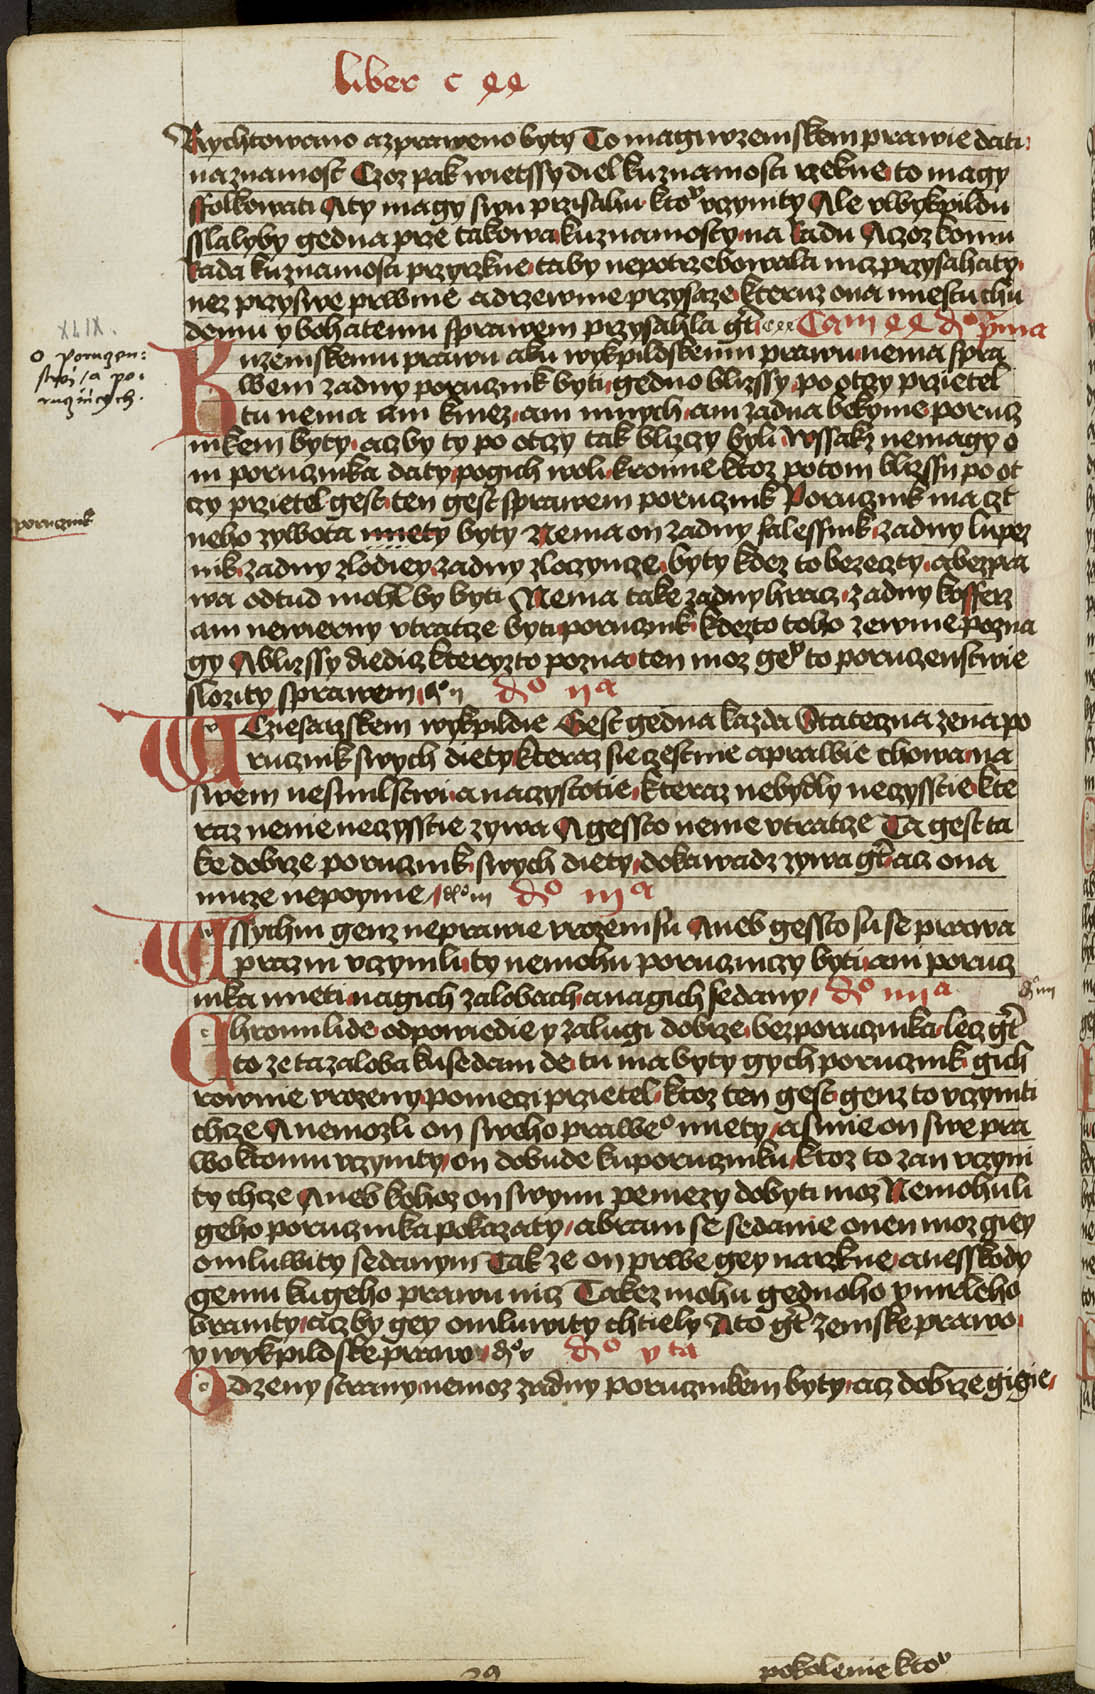 liber c
Rychtowano a zpraweno byty To magi wzemskem prawie dati
na znamost Czoz pak wietssy diel kuznamosti rzekne to magy
ffolkowati A ty magy swu przisahu vczynity Ale vlbykpildu
sslalyby gedna prze takowa kuznamosty na Radu A czoz komu
Rada kuznamosti przyrzkne taby nepotrzebowala nicz przysahaty
nez przyswe prwnie a drzewnie przysaze kteruz ona miestu chu
demu y bohatemu sprawem przysahla
XLIX.
o poruczen:
stwi / a po:
ruczniczych.
K uzemskemu prawu abu wykpildskemu prawu nema spra
wem zadny porucznik byti gedno blizssy po otczy przietel
tu nema ani knez ani mnych ani zadna bekynie porucz
nikem byty aczby ty po otczy tak blizczy byli wssakz nemagy o
ni porucznika daty pogich woli kromie ktoz potom blizssii po ot
czy przietel gest ten gest sprawem porucznik Porucznik ma czt
porucznik
neho zywota miety byty Nema on zadny falessnik zadny lupez
nik zadny zlodiey zadny zloczyncze byty kdez to bezeczty a bezpra
wa odtud mohl by byti Nema take zadny hracz zadny kosserz
ani newierny vtratcze byti porucznik kdezto toho zewnie pozna
gy A blizssy diedicz kteryzto pozna ten moz to poruczenstwie
slozity sprawem
W Cziesarzskem wykpildie Gest gedna kazda Stateczna zena po
rucznik swych diety kteraz sie czestnie a prawie chowa na
swem nesmilstwi a na czystotie kteraz nebydly neczysstie kte
raz nenie neczysstie zywa A gessto nenie vtratcze Ta gest ta
ke dobrze porucznik swych diety dokawadz zywa acz ona
muze nepoymie
W ssychni genz neprawie vrozeni su Aneb gessto su se prawa
prazni vczynilu ty nemohu porucznczy byti ani porucz
nika mieti nagich zalobach a nagich sedany
C hromi lide odpowiedie y zalugi dobrze bez porucznika lecz
to ze ta zaloba kusedani de tu ma byty gych porucznik gich
rownie vrozeny pomezi przietel ktoz ten gest genz to vczyniti
chcze A nemozli on sweho praweo miety a smie on swe pra
wo ktomu vczynity on dobude kuporuczniku ktoz to zan vczyni
ty chcze Aneb kohoz on swymi penezy dobyti moz Nemohuli
geho porucznika pokazaty a brani se sedanie onen moz giey
omluwity sedanym Tak ze on prwe gey narzkne a nesskody
gemu kugeho prawu nicz Takez mohu gednoho vmrleho
branity acz by gey omluwity chtiely Ato zemske prawo
y wykpildske prawo
O dzeny strany nemoz zadny porucznikem byty acz dobrze gigie
pokolenie